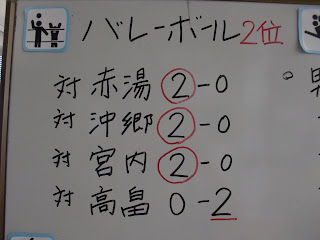 バレーボール2位
対 赤湯 2-0
対 沖郷 2-0
対 宮内 2-0
対 高畠 0-2